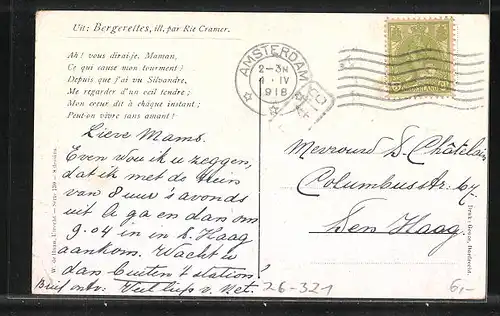 Uit: Bergerettes, ill. par Rie Cramer.
Ah! vous dirai-je, Maman,
Ce qui cause mon tourment?
Depuis que j'ai vu Silvandre,
Me regarder d'un œil tendre;
Mon cœur dit à chàque instant;
Peut-on vivre sans amant!
AMSTERDAM
2-3N
IV
1918
Lieve Mams.
Even wou ik u zeggen,
dat ik met de trein
van 8 uur 's avonds
uit A ga en dan om
9.04 in in d. Haag
aankom. Wacht u
dan buiten 't station?
v. Net.
Mevrouw S. Châtelain
Columbusstr. 67
Den Haag.
W. de Haan, Utrecht — Serie 139 — 8 dessins.
Druk: Geuze, Dordrecht.
26-321
6,-